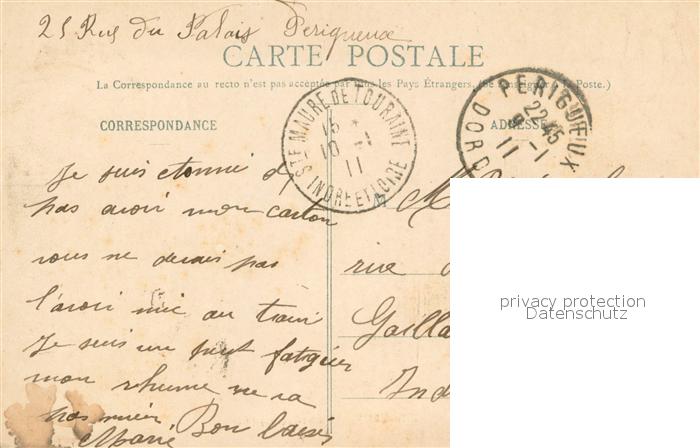 25 Rue du Palais Perigueux
CARTE POSTALE
La Correspondance au recto n'est pas acceptée par tous les Pays Étrangers. (Se renseigner à la Poste.)
CORRESPONDANCE
ADRESSE
STE MAURE DE TOURAINE
15 *
10 -1
11
INDRE ET LOIRE
PERIGUEUX
22 45
9 -1
11
DORD
Je suis etonné d
pas avoir mon carton
vous ne devais pas
l'avoir mie au train
Je suis un peut fatiguée
mon rhume ne va
pas mieu Bon baisés
Marie
M
rue
Gailla
Ind
privacy protection
Datenschutz